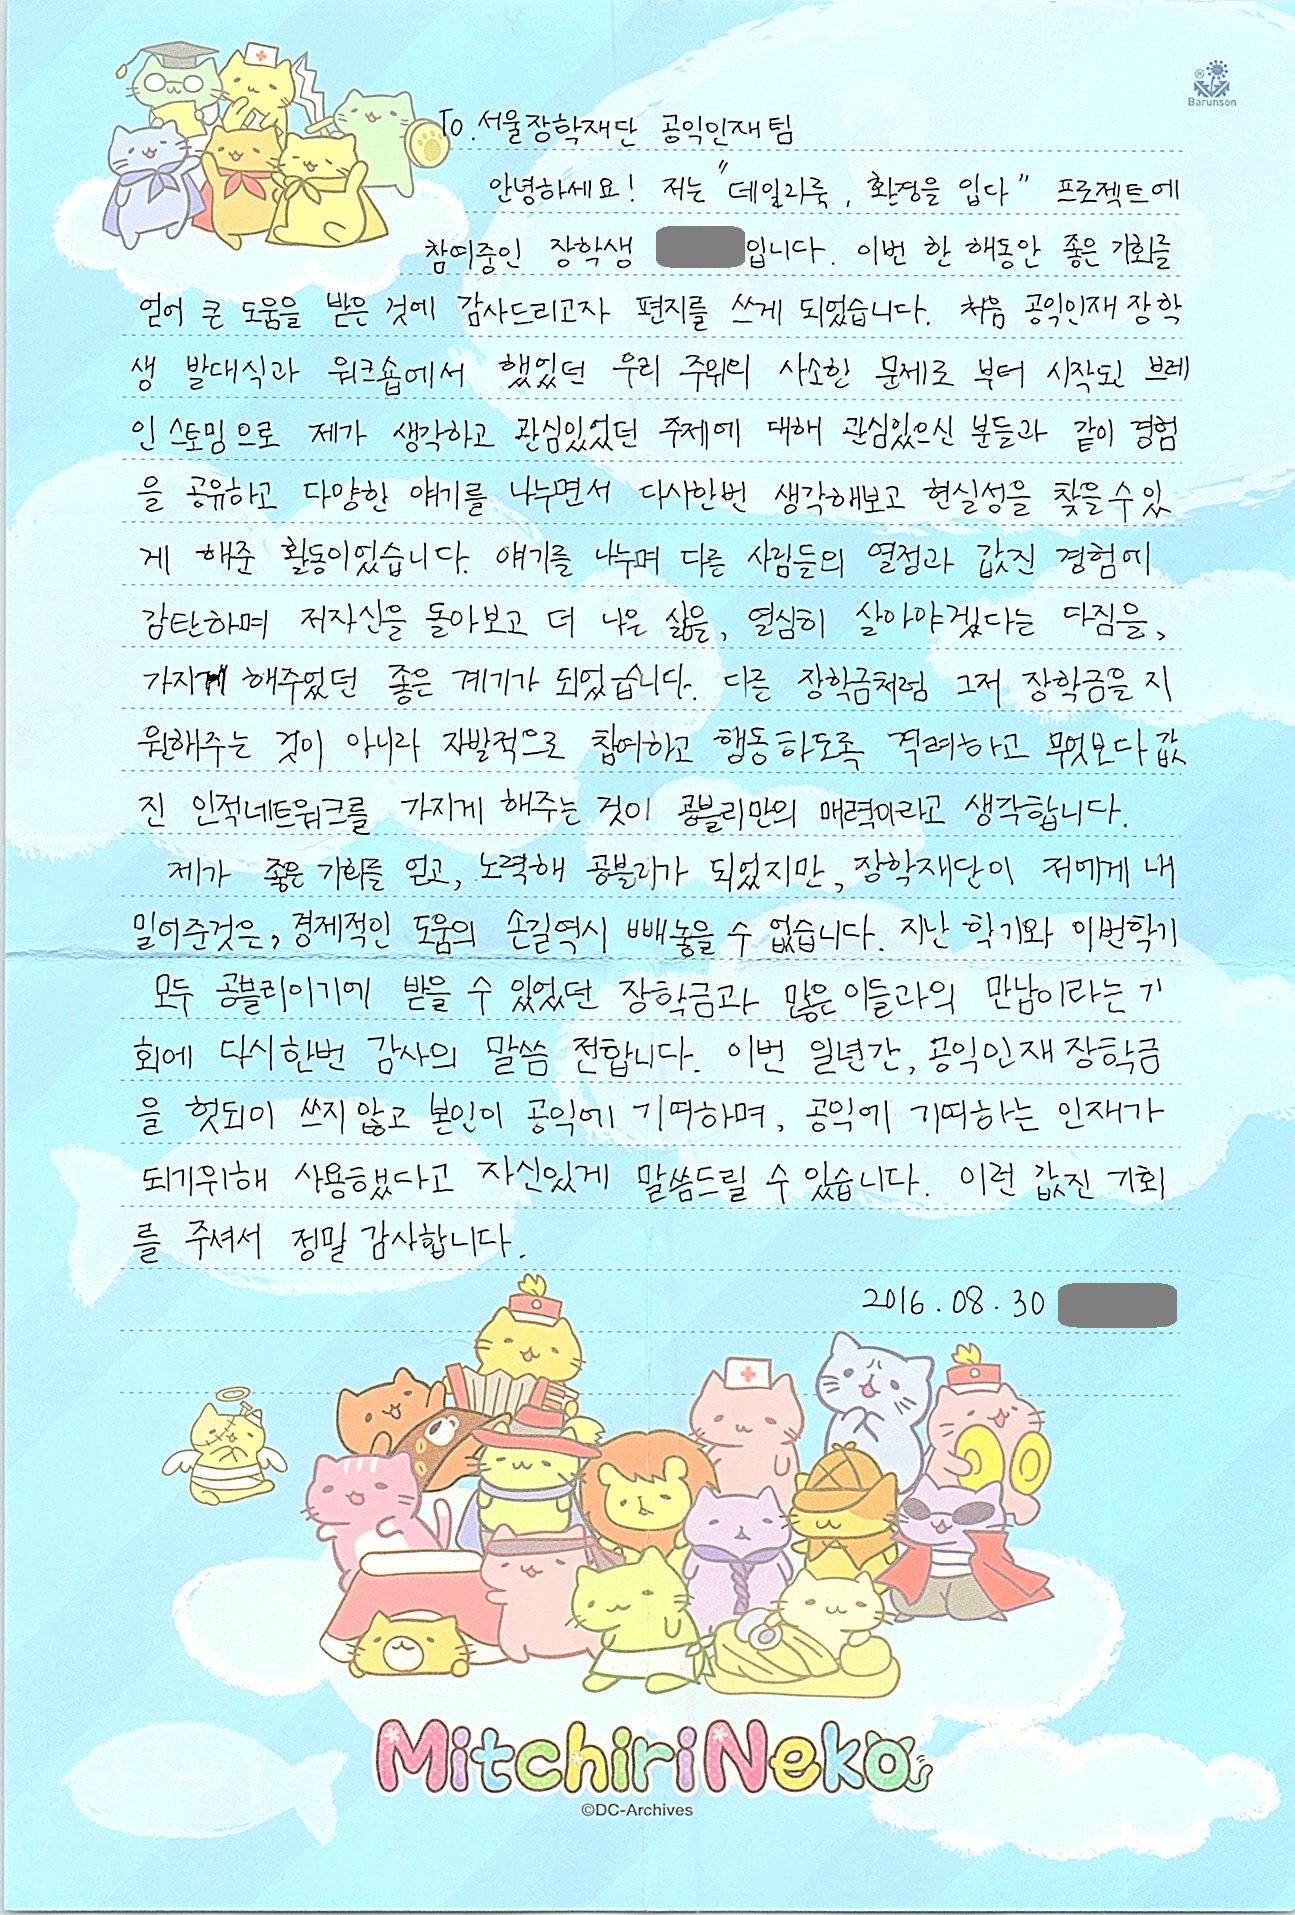 Barunson
To. 서울장학재단 공익인재팀
안녕하세요! 저는 "데일리룩, 환경을 입다" 프로젝트에
참여중인 장학생 입니다. 이번 한 해동안 좋은 기회를
얻어 큰 도움을 받은 것에 감사드리고자 편지를 쓰게 되었습니다. 처음 공익인재 장학
생 발대식과 워크숍에서 했었던 우리 주위의 사소한 문제로 부터 시작된 브레
인 스토밍으로 제가 생각하고 관심있었던 주제에 대해 관심있으신 분들과 같이 경험
을 공유하고 다양한 얘기를 나누면서 다시한번 생각해보고 현실성을 찾을 수 있
게 해준 활동이었습니다. 얘기를 나누며 다른 사람들의 열정과 값진 경험에
감탄하며 저자신을 돌아보고 더 나은 삶을, 열심히 살아야겠다는 다짐을,
가지게 해주었던 좋은 계기가 되었습니다. 다른 장학금처럼 그저 장학금을 지
원해주는 것이 아니라 자발적으로 참여하고 행동하도록 격려하고 무엇보다 값
진 인적네트워크를 가지게 해주는 것이 공블리만의 매력이라고 생각합니다.
제가 좋은 기회를 얻고, 노력해 공블리가 되었지만, 장학재단이 저에게 내
밀어준것은, 경제적인 도움의 손길역시 빼놓을 수 없습니다. 지난 학기와 이번학기
모두 공블리이기에 받을 수 있었던 장학금과 많은 이들과의 만남이라는 기
회에 다시한번 감사의 말씀 전합니다. 이번 일년간, 공익인재 장학금
을 헛되이 쓰지 않고 본인이 공익에 기여하며, 공익에 기여하는 인재가
되기위해 사용했다고 자신있게 말씀드릴 수 있습니다. 이런 값진 기회
를 주셔서 정말 감사합니다.
2016.08.30
MitchiriNeko
©DC-Archives